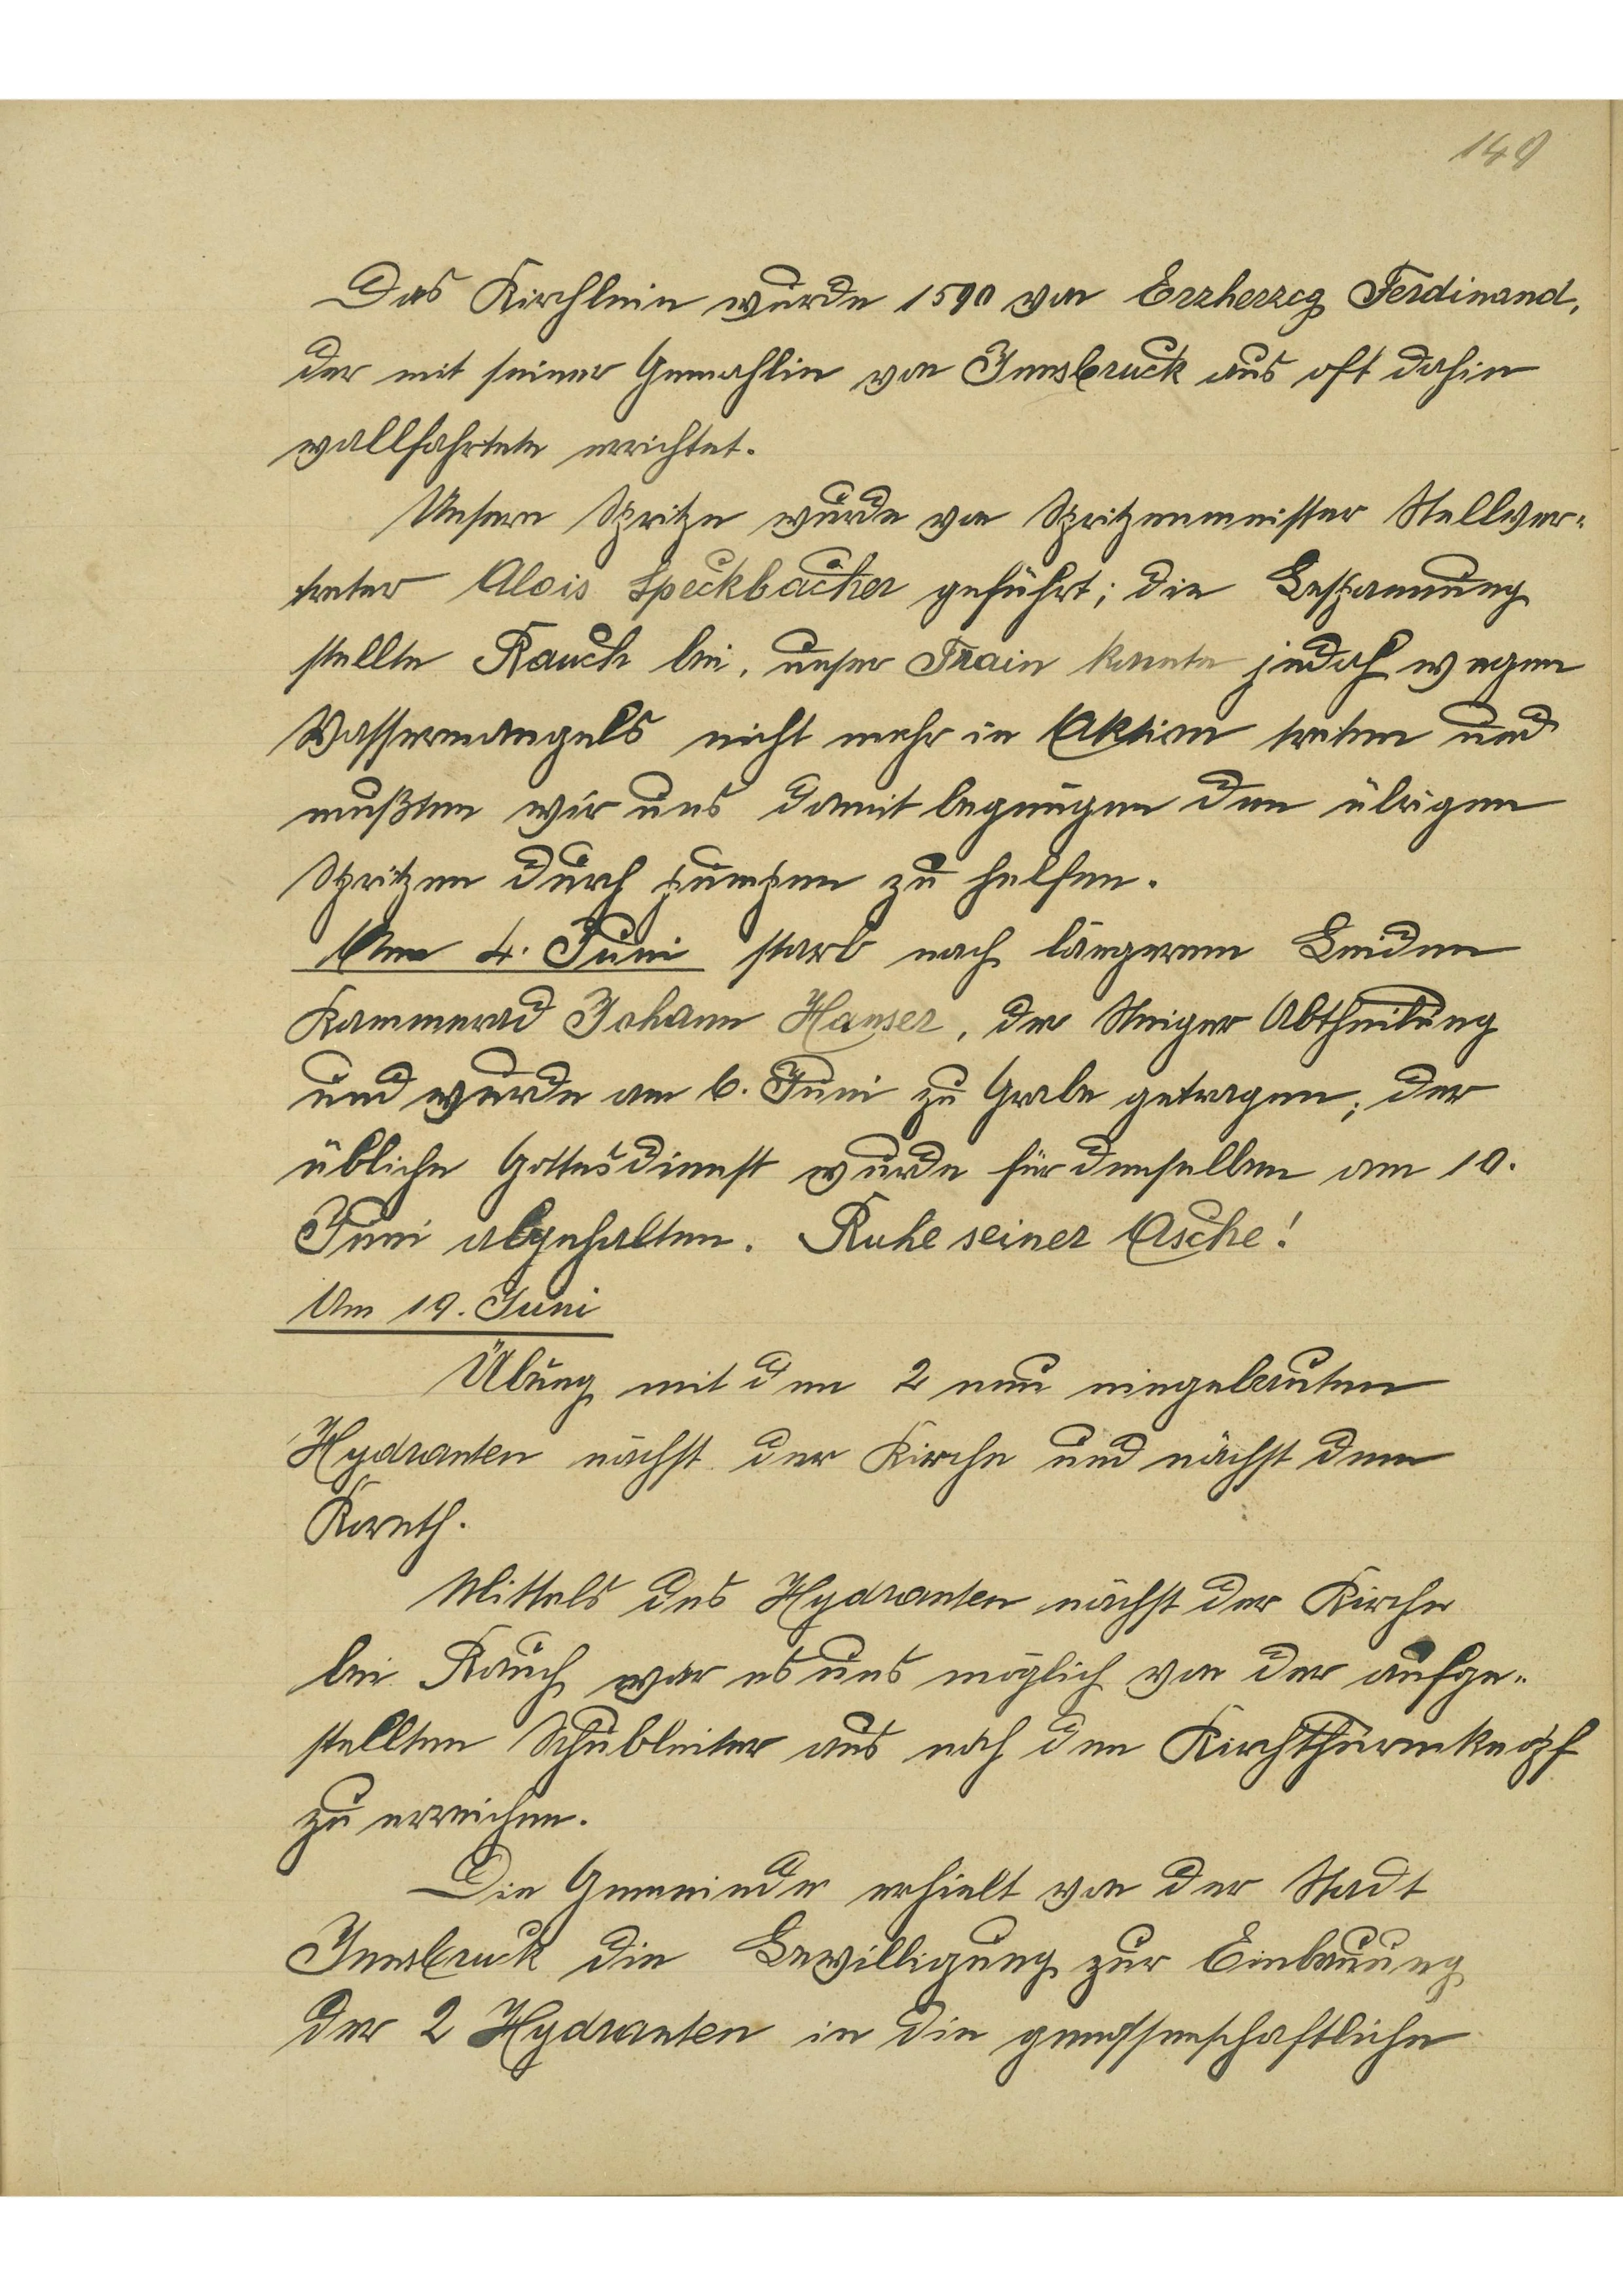 149
Das Kirchlein wurde 1590 von Erzherzog Ferdinand,
der mit seiner Gemahlin von Innsbruck aus oft dahin
wallfahrtete errichtet.
Unsere Spritze wurde von Spritzenmeister Stellver-
treter Alois Speckbacher geführt; die Bespannung
stellte Rauch bei, unser Train konnte jedoch wegen
Wassermangels nicht mehr in Aktion treten und
mußten wir uns damit begnügen den übrigen
Spritzen durch pumpen zu helfen.
Am 4. Juni starb nach längerem Leiden
Kammerad Johann Hanser, der Steiger Abtheilung
und wurde am 6. Juni zu Grabe getragen; der
übliche Gottesdienst wurde für denselben am 10.
Juni abgehalten. Ruhe seiner Asche!
Am 19. Juni
Übung mit den 2 neu eingebauten
Hydranten nächst der Kirche und nächst dem
Koreth.
Mittels des Hydranten nächst der Kirche
bei Rauch war es uns möglich von der aufge-
stellten Schubleiter aus noch den Kirchthurmknopf
zu erreichen.
Die Gemeinde erhielt von der Stadt
Innsbruck die Bewilligung zur Einbauung
der 2 Hydranten in die genossenschaftliche